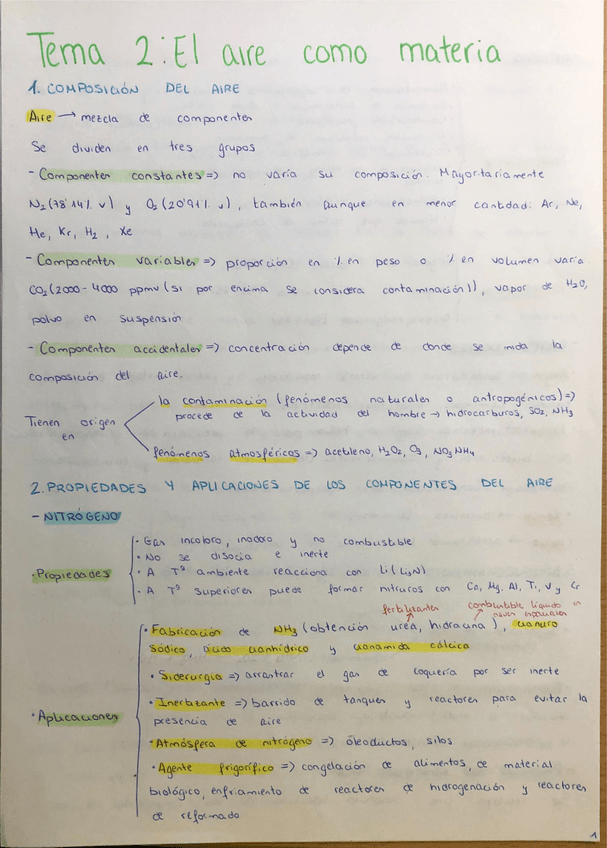 Tema 2: El aire como materia
1. COMPOSICIÓN DEL AIRE
Aire → mezcla de componentes
Se dividen en tres grupos
- Componentes constantes => no varía su composición. Mayoritariamente
N₂ (78'14% v) y O₂ (20'91% v), también aunque en menor cantidad: Ar, Ne,
He, Kr, H₂, Xe
- Componentes variables => proporción en % en peso o % en volumen varía
CO₂ (2000-4000 ppmv (si por encima se considera contaminación)), vapor de H₂O,
polvo en suspensión
- Componentes accidentales => concentración depende de donde se mida la
composición del aire.
Tienen origen en
la contaminación (fenómenos naturales o antropogénicos) =>
procede de la actividad del hombre → hidrocarburos, SO₂, NH₃
fenómenos atmosféricos => acetileno, H₂O₂, O₃, NO₃NH₄
2. PROPIEDADES Y APLICACIONES DE LOS COMPONENTES DEL AIRE
- NITRÓGENO
· Propiedades
· Gas incoloro, inodoro y no combustible
· No se disocia e inerte
· A Tª ambiente reacciona con Li (Li₃N)
· A Tª superiores puede formar nitruros con Ca, Mg, Al, Ti, V y Cr
fertilizantes combustible líquido en
· Aplicaciones
· Fabricación de NH₃ (obtención urea, hidracina), cianuro
sódico, ácido cianhídrico y cianamida cálcica
· Siderurgia => arrastrar el gas de coquería por ser inerte
· Inertizante => barrido de tanques y reactores para evitar la
presencia de aire
· Atmósfera de nitrógeno => óleoductos, silos
· Agente frigorífico => congelación de alimentos, de material
biológico, enfriamiento de reactores de hidrogenación y reactores
de reformado
1